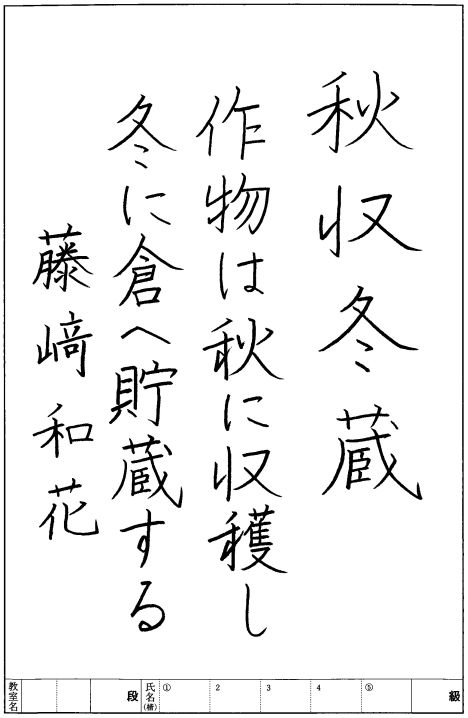 秋収冬蔵
作物は秋に収穫し
冬に倉へ貯蔵する
藤﨑和花
級
⑤
4
3
2
①
氏名(楷)
段
教室名